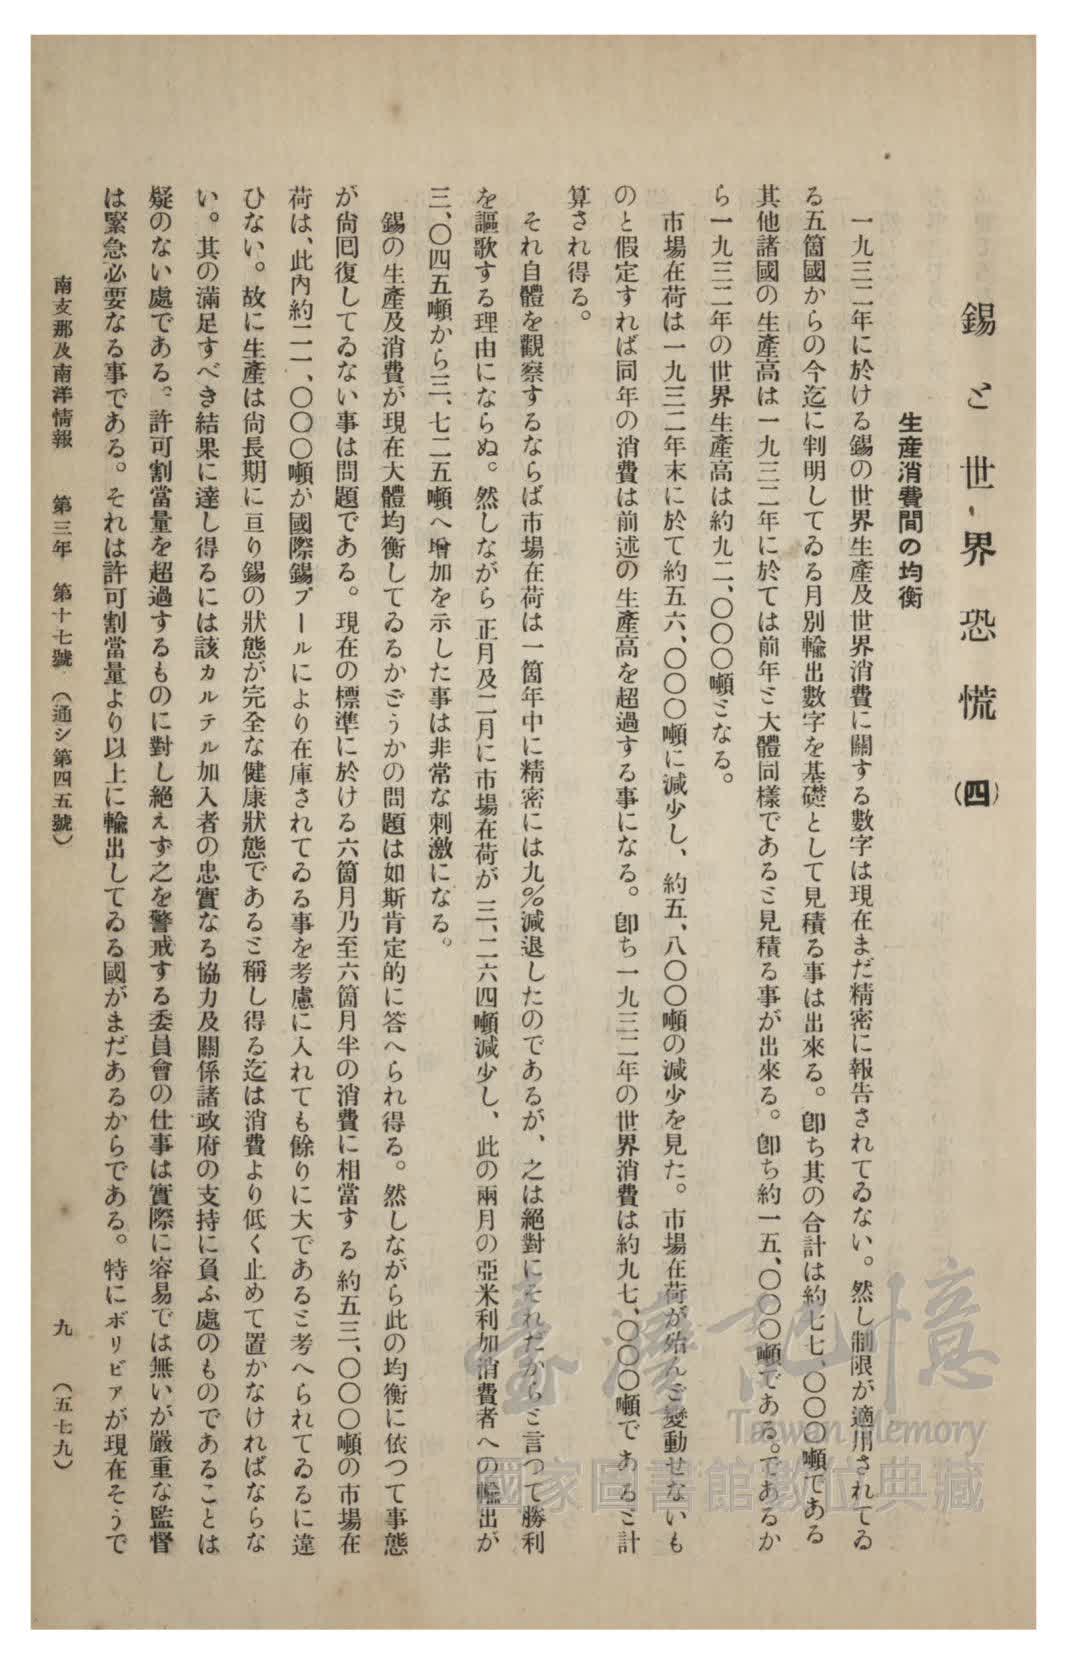 錫と世界恐慌 (四)
生産消費間の均衡
一九三二年に於ける錫の世界生産及世界消費に關する數字は現在まだ精密に報告されてゐない。然し制限が適用されてる
る五箇國からの今迄に判明してゐる月別輸出數字を基礎として見積る事は出來る。卽ち其の合計は約七七、〇〇〇噸である
其他諸國の生産高は一九三二年に於ては前年と大體同樣であると見積る事が出來る。卽ち約一五、〇〇〇噸である。であるか
ら一九三二年の世界生産高は約九二、〇〇〇噸となる。
市場在荷は一九三二年末に於て約五六、〇〇〇噸に減少し、約五、八〇〇噸の減少を見た。市場在荷が殆んど變動せないも
のと假定すれば同年の消費は前述の生産高を超過する事になる。卽ち一九三二年の世界消費は約九七、〇〇〇噸であると計
算され得る。
それ自體を觀察するならば市場在荷は一箇年中に精密には九%減退したのであるが、之は絕對にそれだからと言つて勝利
を謳歌する理由にならぬ。然しながら正月及二月に市場在荷が三、二六四噸減少し、此の兩月の亞米利加消費者への輸出が
三、〇四五噸から三、七二五噸へ增加を示した事は非常な刺激になる。
錫の生産及消費が現在大體均衡してゐるかどうかの問題は如斯肯定的に答へられ得る。然しながら此の均衡に依つて事態
が尙囘復してるない事は問題である。現在の標準に於ける六箇月乃至六箇月半の消費に相當する約五三、〇〇〇噸の市場在
荷は、此內約二一、〇〇〇噸が國際錫プールにより在庫されてゐる事を考慮に入れても餘りに大であると考へられてゐるに違
ひない。故に生産は尙長期に亘り錫の狀態が完全な健康狀態であると稱し得る迄は消費より低く止めて置かなければならな
い。其の滿足すべき結果に達し得るには該カルテル加入者の忠實なる協力及關係諸政府の支持に負ふ處のものであることは
疑のない處である。許可割當量を超過するものに對し絕えず之を警戒する委員會の仕事は實際に容易では無いが嚴重な監督
は緊急必要なる事である。それは許可割當量より以上に輸出してゐる國がまだあるからである。特にボリビアが現在そうで
南支那及南洋情報 第三年 第十七號 (通シ第四五號) 九 (五七九)
臺灣記憶
Taiwan Memory
國家圖書館數位典藏